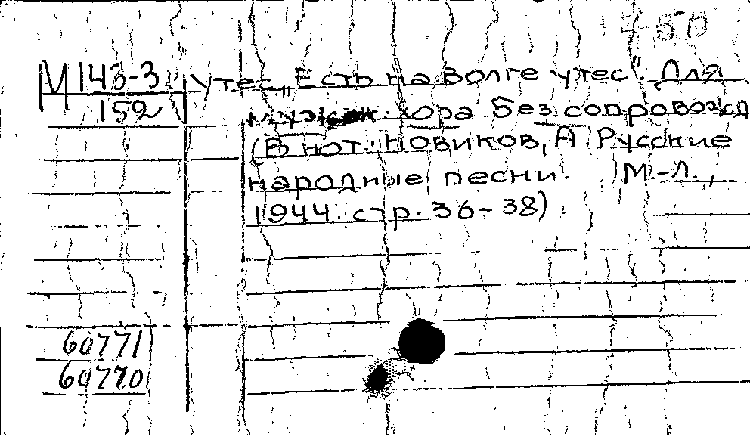 М 143-3
152
Утес „Есть на Волге утес". Для
мужск. хора без сопровожд
(В нот.: Новиков, А Русские
народные песни. М-Л.,
1944. стр. 36-38)
60771
60770